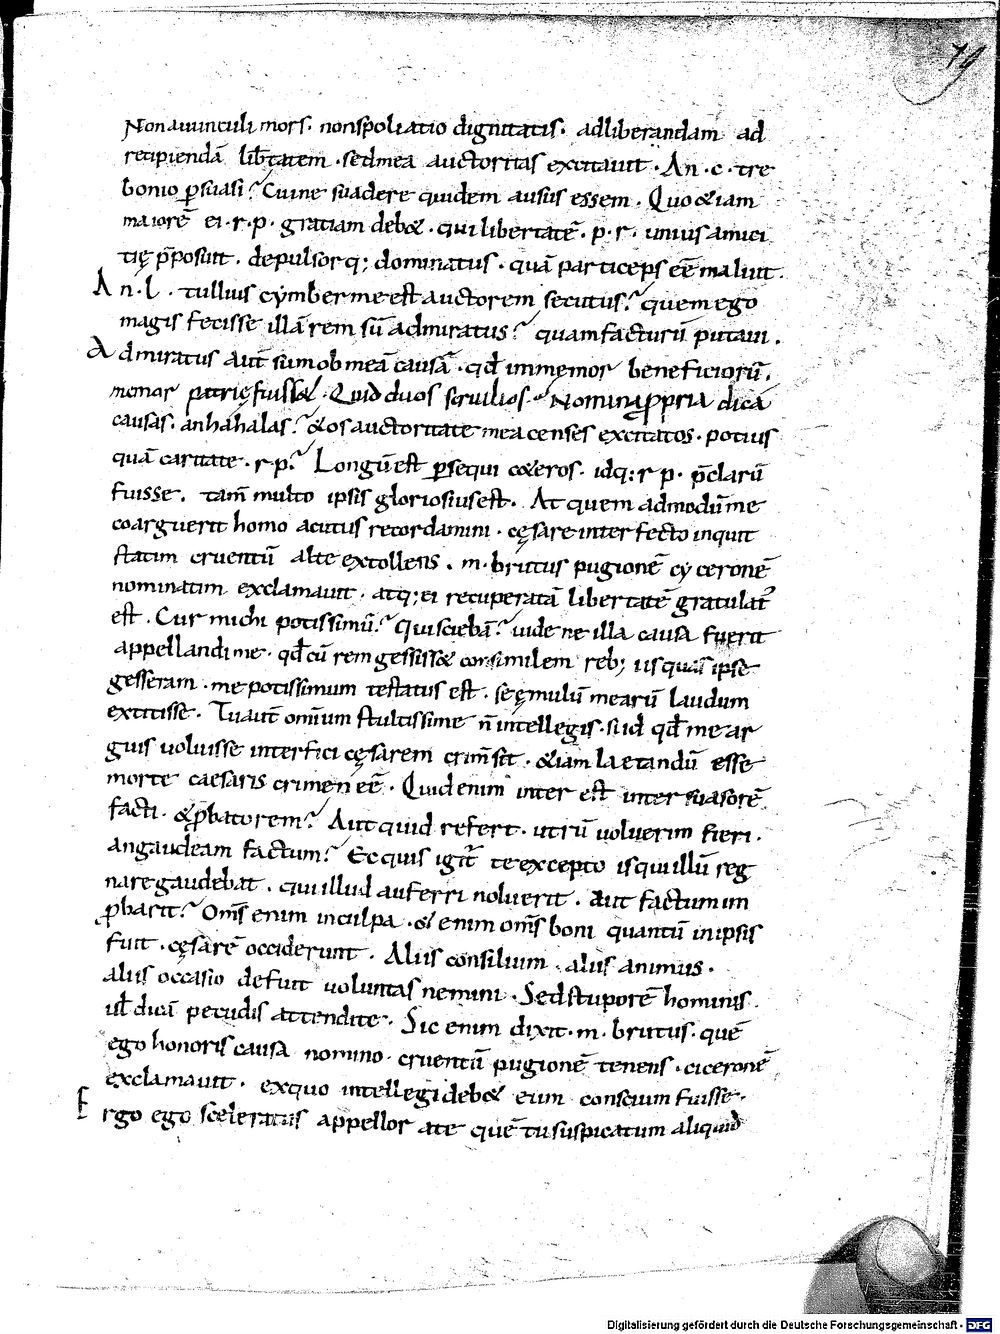 19
Non auunculi mors · non spoliatio dignitatis · ad liberandam ad
recipiendā lib̄tatem · sed mea auctoritas excitauit · An · c · tre
bonio ꝑsuasi? Cui ne suadere quidem ausus essem · Quo &iam
maiorē ei · r · p · gratiam deb& · qui libertatē · p · r · unius amici
tię p̄posuit · depulsorq; dominatus · quā particeps eē maluit ·
An · l · tullius cymber me est auctorem secutus? quem ego
magis fecisse illā rem sū admiratus? quam facturū putaui ·
Admiratus aut̄ sum ob meā causā · qđ immemor beneficiorū ·
memor patrię fuiss& · Quid duos seruilios · Nomina ꝓpria dicā
causas · an hahalas? &os auctoritate mea censes excitatos · potius
quā caritate · r p? Longū est ꝑsequi c&eros · idq: r p · p̄clarū
fuisse · tam̄ multo ipsis gloriosius est · At quem admodū me
coarguerit homo acutus recordamini · cęsare interfecto inquit
statim cruentū alte extollens · m · brutus pugionē cyceronē
nominatim exclamauit · atq; ei recuperatā libertatē gratulat᷒
est · Cur michi potissimū? Qui sciebā? uide ne illa causa fuerit
appellandi me · qđ cū rem gessiss& consimilem reb; iis quas ipse
gesseram · me potissimum testatus est · se ęmulū mearū laudum
extitisse · Tu aut̄ om̄ium stultissime n̄ intellegis · si id qđ me ar
guis uoluisse interfici cęsarem crim̄ sit · &iam laetandū esse
morte caesaris crimen eē · Quid enim inter est inter suasorē
facti · & ꝓbatorem? Aut quid refert · utrū uoluerim fieri ·
an gaudeam factum? Ecquis igit̄ te excepto is qui illū reg
nare gaudebat · qui illud auferri noluerit · aut factum im
ꝓbarit? Om̄s enim in culpa · &enim om̄s boni quantū in ipsis
fuit · cęsarē occiderunt · Aliis consilium · aliis animus ·
aliis occasio defuit uoluntas nemini · Sed stuporē hominis ·
ul̄ dicā pecudis attendite · Sic enim dixit · m · brutus · quē
ego honoris causa nomino · cruentū pugionē tenens · ciceronē
exclamauit · ex quo intellegi deb& eum conscium fuisse ·
Ergo ego sceleratus appellor a te quē tu suspicatum aliquid
Digitalisierung gefördert durch die Deutsche Forschungsgemeinschaft - DFG